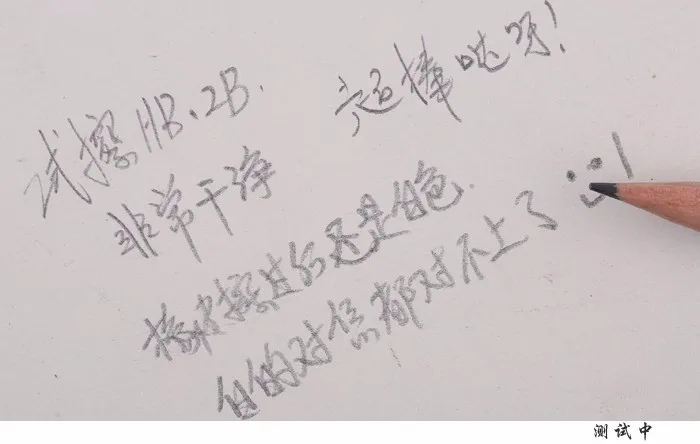 试擦HB、2B.
超棒哒呀!
非常干净
橡皮擦过的还是白色.
白的对焦都对不上了
测试中